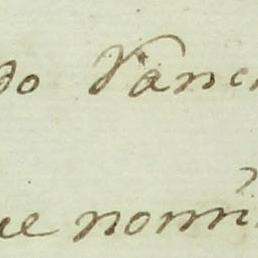 do Vanc
ue nomi